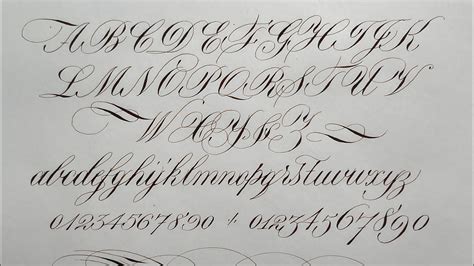 ABCDEFGHIJK
LMNOPQRSTUV
WXYZ
abcdefghijklmnopqrstuvwxyz
01234567890 01234567890